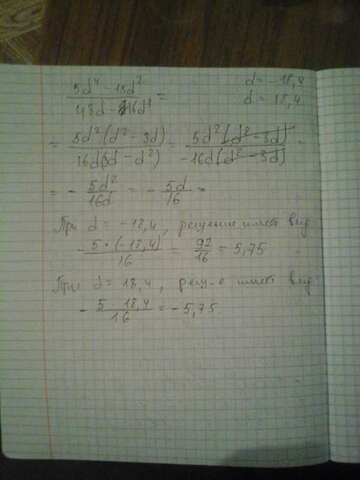 5d⁴ - 15d²
d = -18,4
48d - 16d³ =
d = 18,4
= 5d²(d² - 3d) / 16d(3d - d²) = 5d²(d² - 3d) / -16d(d² - 3d) =
= - 5d² / 16d = - 5d / 16 =
При d = -18,4, решение имеет вид
- 5·(-18,4) / 16 = 92 / 16 = 5,75
При d = 18,4, реш-е имеет вид
- 5 18,4 / 16 = - 5,75